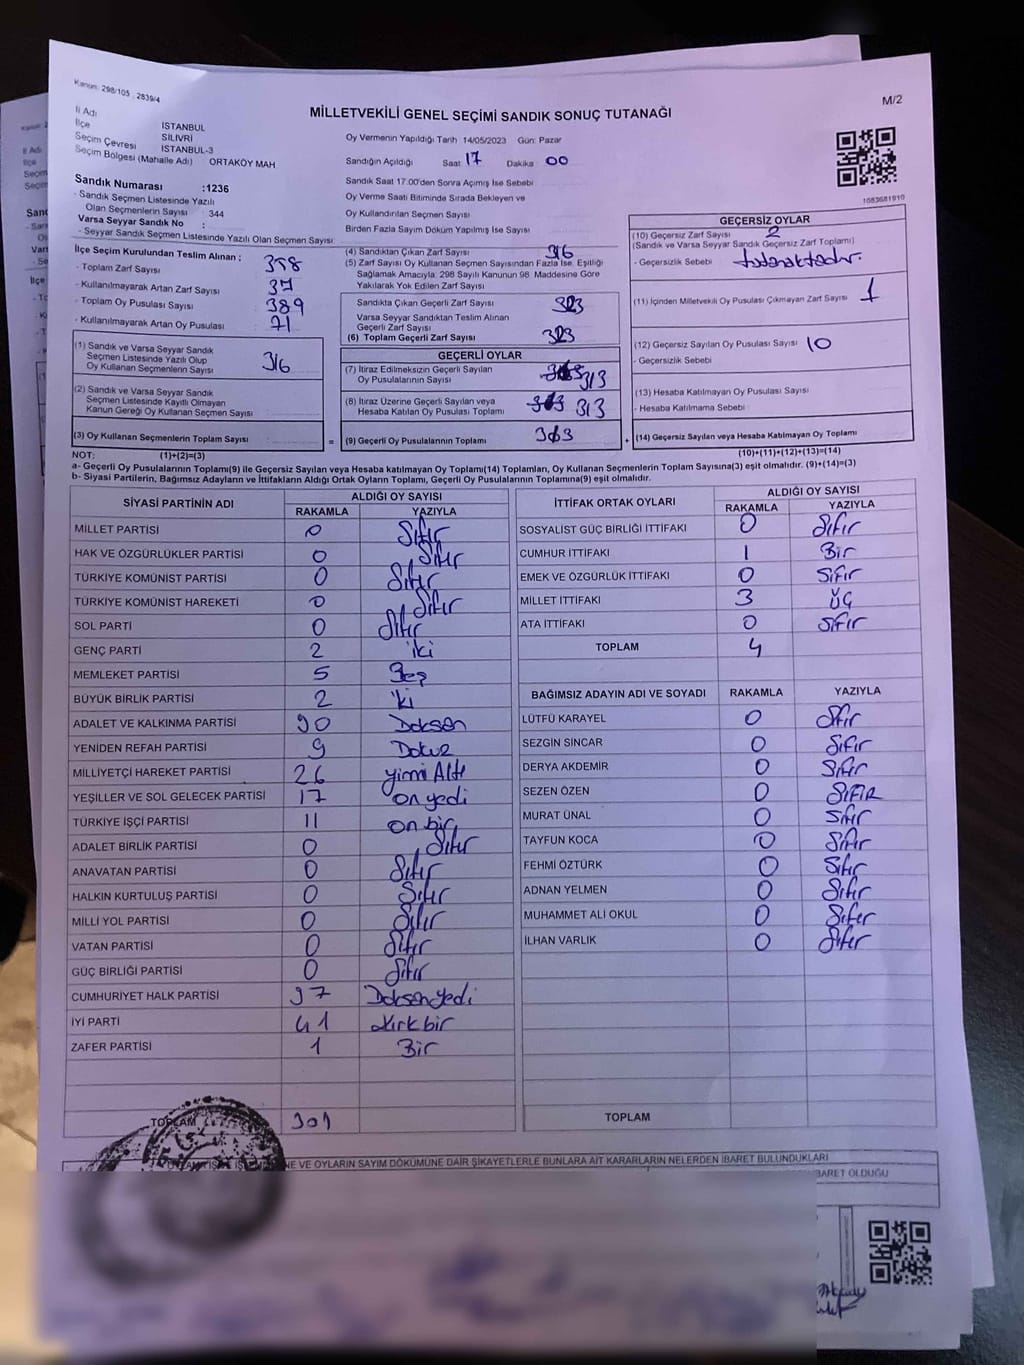 Kanun: 298/105 , 2839/4
M/2
MİLLETVEKİLİ GENEL SEÇİMİ SANDIK SONUÇ TUTANAĞI
İl Adı
İlçe İSTANBUL
Seçim Çevresi SİLİVRİ
Seçim Bölgesi (Mahalle Adı) İSTANBUL-3
ORTAKÖY MAH.
Sandık Numarası :1236
- Sandık Seçmen Listesinde Yazılı
Olan Seçmenlerin Sayısı : 344
Varsa Seyyar Sandık No :
- Seyyar Sandık Seçmen Listesinde Yazılı Olan Seçmen Sayısı
Oy Vermenin Yapıldığı Tarih 14/05/2023 Gün: Pazar
Sandığın Açıldığı Saat 17 Dakika 00
Sandık Saat 17.00'den Sonra Açımış İse Sebebi
Oy Verme Saati Bitiminde Sırada Bekleyen ve
Oy Kullandırılan Seçmen Sayısı
Birden Fazla Sayım Döküm Yapılmış İse Sayısı
1083681910
İlçe Seçim Kurulundan Teslim Alınan :
- Toplam Zarf Sayısı 358
- Kullanılmayarak Artan Zarf Sayısı 37
- Toplam Oy Pusulası Sayısı 389
- Kullanılmayarak Artan Oy Pusulası 71
(1) Sandık ve Varsa Seyyar Sandık
Seçmen Listesinde Yazılı Olup
Oy Kullanan Seçmenlerin Sayısı 316
(2) Sandık ve Varsa Seyyar Sandık
Seçmen Listesinde Kayıtlı Olmayan
Kanun Gereği Oy Kullanan Seçmen Sayısı
(3) Oy Kullanan Seçmenlerin Toplam Sayısı =
(4) Sandıktan Çıkan Zarf Sayısı 316
(5) Zarf Sayısı Oy Kullanan Seçmen Sayısından Fazla İse, Eşitliği
Sağlamak Amacıyla, 298 Sayılı Kanunun 98. Maddesine Göre
Yakılarak Yok Edilen Zarf Sayısı
Sandıkta Çıkan Geçerli Zarf Sayısı 323
Varsa Seyyar Sandıktan Teslim Alınan
Geçerli Zarf Sayısı
(6) Toplam Geçerli Zarf Sayısı 323
GEÇERLİ OYLAR
(7) İtiraz Edilmeksizin Geçerli Sayılan
Oy Pusulalarının Sayısı 313
(8) İtiraz Üzerine Geçerli Sayılan veya
Hesaba Katılan Oy Pusulası Toplamı 313
(9) Geçerli Oy Pusulalarının Toplamı 313 +
GEÇERSİZ OYLAR
(10) Geçersiz Zarf Sayısı 2
(Sandık ve Varsa Seyyar Sandık Geçersiz Zarf Toplamı)
- Geçersizlik Sebebi
(11) İçinden Milletvekili Oy Pusulası Çıkmayan Zarf Sayısı 1
(12) Geçersiz Sayılan Oy Pusulası Sayısı 10
- Geçersizlik Sebebi
(13) Hesaba Katılmayan Oy Pusulası Sayısı
- Hesaba Katılmama Sebebi
(14) Geçersiz Sayılan veya Hesaba Katılmayan Oy Toplamı
NOT: (1)+(2)=(3) (10)+(11)+(12)+(13)=(14)
a- Geçerli Oy Pusulalarının Toplamı(9) ile Geçersiz Sayılan veya Hesaba katılmayan Oy Toplamı(14) Toplamları, Oy Kullanan Seçmenlerin Toplam Sayısına(3) eşit olmalıdır. (9)+(14)=(3)
b- Siyasi Partilerin, Bağımsız Adayların ve İttifakların Aldığı Ortak Oyların Toplamı, Geçerli Oy Pusulalarının Toplamına(9) eşit olmalıdır.
SİYASİ PARTİNİN ADI ALDIĞI OY SAYISI
RAKAMLA YAZIYLA
MİLLET PARTİSİ 0 Sıfır
HAK VE ÖZGÜRLÜKLER PARTİSİ 0 Sıfır
TÜRKİYE KOMÜNİST PARTİSİ 0 Sıfır
TÜRKİYE KOMÜNİST HAREKETİ 0 Sıfır
SOL PARTİ 0 Sıfır
GENÇ PARTİ 2 iki
MEMLEKET PARTİSİ 5 Beş
BÜYÜK BİRLİK PARTİSİ 2 iki
ADALET VE KALKINMA PARTİSİ 90 Doksan
YENİDEN REFAH PARTİSİ 9 Dokuz
MİLLİYETÇİ HAREKET PARTİSİ 26 yirmi Altı
YEŞİLLER VE SOL GELECEK PARTİSİ 17 on yedi
TÜRKİYE İŞÇİ PARTİSİ 11 on bir
ADALET BİRLİK PARTİSİ 0 Sıfır
ANAVATAN PARTİSİ 0 Sıfır
HALKIN KURTULUŞ PARTİSİ 0 Sıfır
MİLLİ YOL PARTİSİ 0 Sıfır
VATAN PARTİSİ 0 Sıfır
GÜÇ BİRLİĞİ PARTİSİ 0 Sıfır
CUMHURİYET HALK PARTİSİ 97 Doksanyedi
İYİ PARTİ 41 Kırkbir
ZAFER PARTİSİ 1 Bir
TOPLAM 301
İTTİFAK ORTAK OYLARI ALDIĞI OY SAYISI
RAKAMLA YAZIYLA
SOSYALİST GÜÇ BİRLİĞİ İTTİFAKI 0 Sıfır
CUMHUR İTTİFAKI 1 Bir
EMEK VE ÖZGÜRLÜK İTTİFAKI 0 Sıfır
MİLLET İTTİFAKI 3 ÜÇ
ATA İTTİFAKI 0 Sıfır
TOPLAM 4
BAĞIMSIZ ADAYIN ADI VE SOYADI RAKAMLA YAZIYLA
LÜTFÜ KARAYEL 0 Sıfır
SEZGİN SİNCAR 0 Sıfır
DERYA AKDEMİR 0 Sıfır
SEZEN ÖZEN 0 SIFIR
MURAT ÜNAL 0 Sıfır
TAYFUN KOCA 0 Sıfır
FEHMİ ÖZTÜRK 0 Sıfır
ADNAN YELMEN 0 Sıfır
MUHAMMET ALİ OKUL 0 Sıfır
İLHAN VARLIK 0 Sıfır
TOPLAM
NE VE OYLARIN SAYIM DÖKÜMÜNE DAİR ŞİKAYETLERLE BUNLARA AİT KARARLARIN NELERDEN İBARET BULUNDUKLARI
BARET OLDUĞU